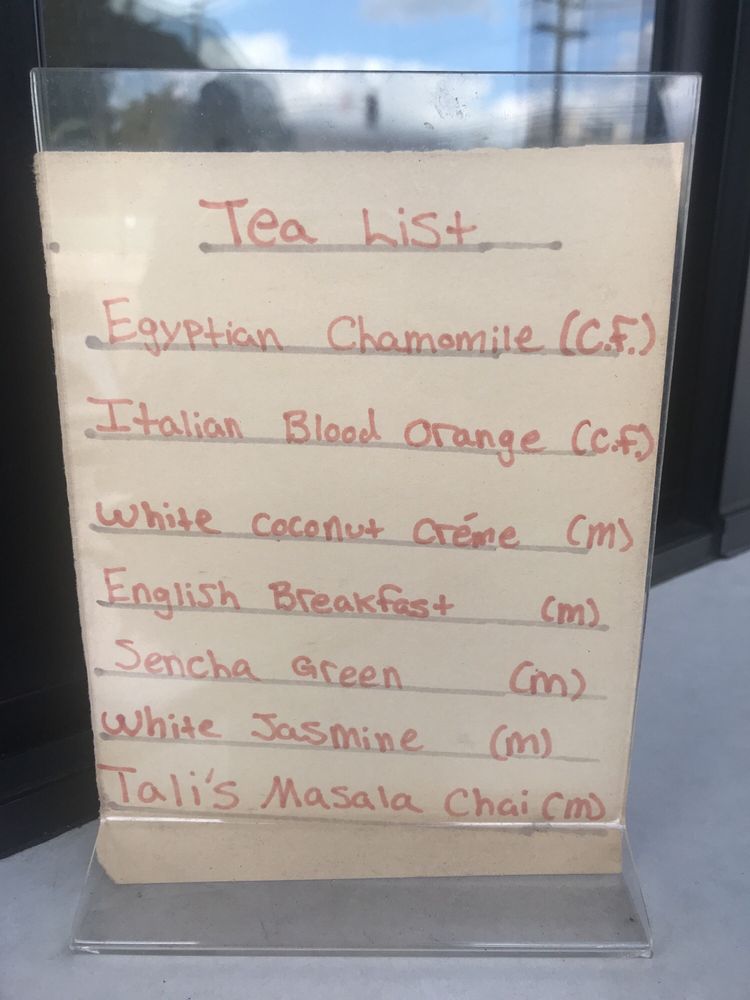 Tea List
Egyptian Chamomile (C.F.)
Italian Blood Orange (C.F.)
White Coconut Créme (m)
English Breakfast (m)
Sencha Green (m)
White Jasmine (m)
Tali's Masala Chai (m)